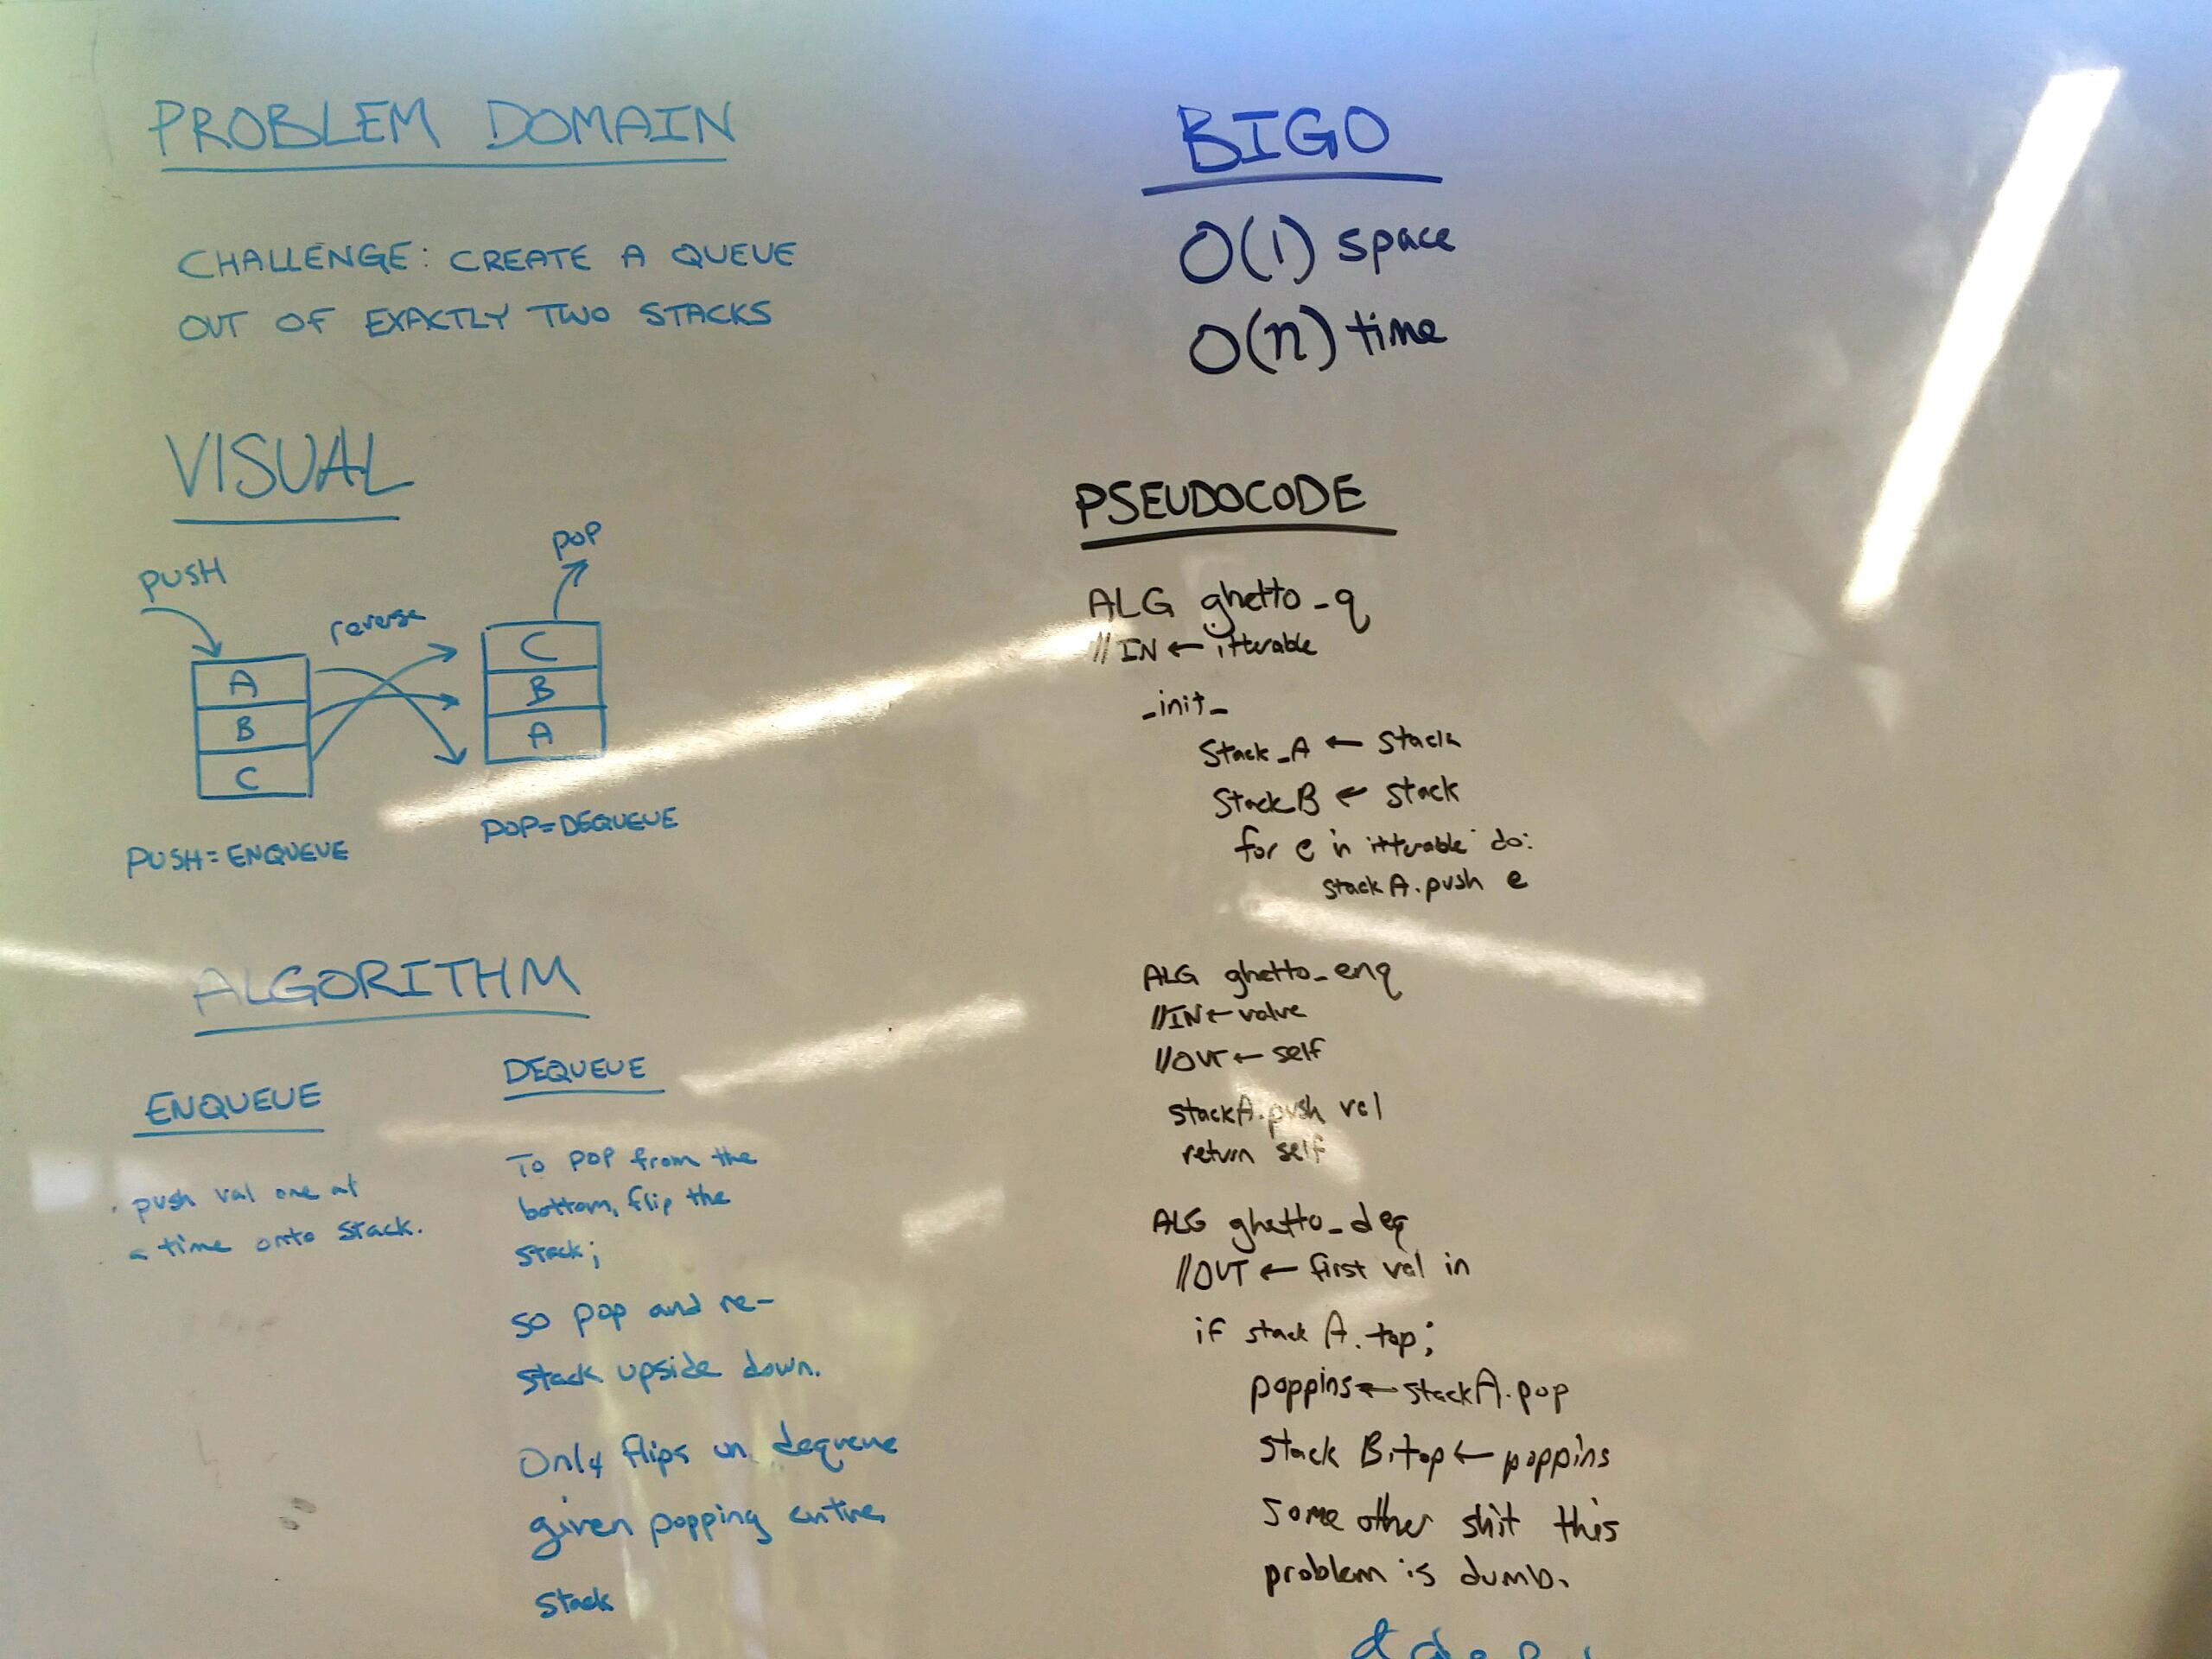 PROBLEM DOMAIN
CHALLENGE: CREATE A QUEUE
OUT OF EXACTLY TWO STACKS
VISUAL
PUSH
reverse
POP
A
B
C
C
B
A
PUSH = ENQUEUE
POP = DEQUEUE
ALGORITHM
ENQUEUE
push val one at
a time onto stack.
DEQUEUE
To pop from the
bottom, flip the
stack;
so pop and re-
stack upside down.
Only flips on dequeue
given popping entire
stack
BIGO
O(1) space
O(n) time
PSEUDOCODE
ALG ghetto_q
// IN ← itterable
_init_
Stack_A ← stack
Stack_B ← stack
for e in itterable do:
stackA.push e
ALG ghetto_enq
//IN ← value
//OUT ← self
stackA.push val
return self
ALG ghetto_deq
//OUT ← first val in
if stack A.top;
poppins ← stackA.pop
stack B.top ← poppins
some other shit this
problem is dumb.